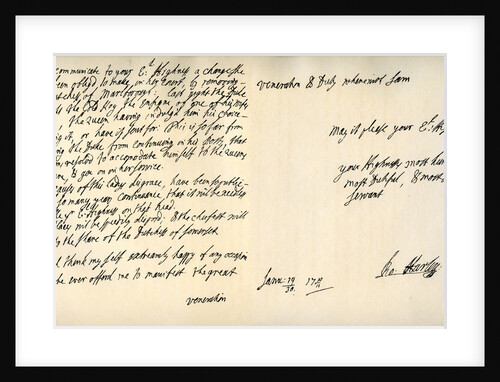 communicate to your E:ll Highness a change the
been oblig'd to make in her Court, by removing
Dutches of Marlborough: last night the Duke
the Gold Key the Ensigne of one of his posts
the Queen having indulg'd him the choice
it, or have it sent for: This is so far from
the Duke from continuing in his Posts, that
resolved to accomodate himself to the Queen,
& goe on in her service.
causes of this Ladys disgrace, have been so publie
so many years continuance, that it will be needless
Highness on that head
will be speedily dispos'd: & the cheifest will
the share of the Dutchess of Somerset
I think my self extreamly happy if any occasion
be ever offord me to manifest the great
veneration
veneration & Duty wherewith I am
May it please your E:ll H
your Highness's most hum
most Dutyful, & most
servant
Janu: 19/30. 17 10/11
Ro: Harley